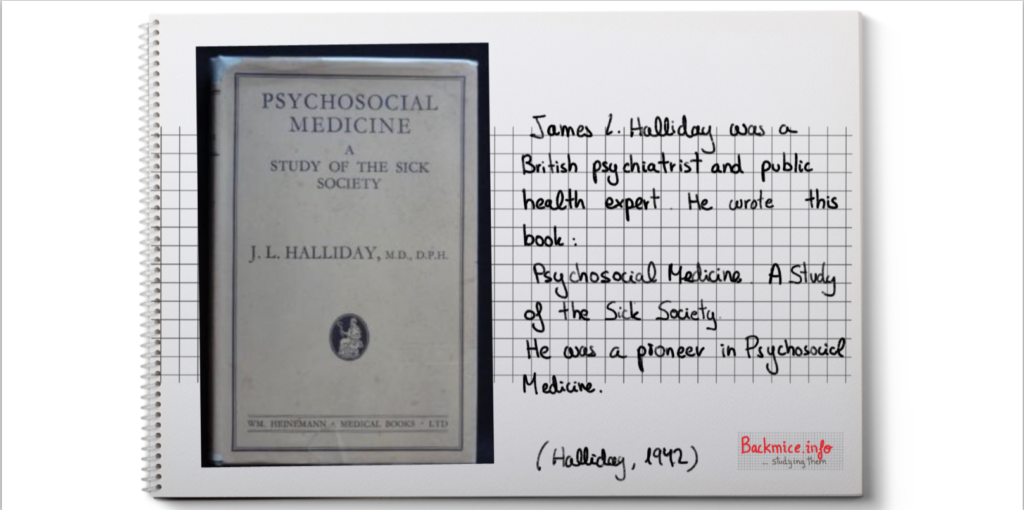 PSYCHOSOCIAL
MEDICINE
A
STUDY OF THE SICK
SOCIETY
J. L. HALLIDAY, M.D., D.P.H.
WM. HEINEMANN · MEDICAL BOOKS · LTD
James L. Halliday was a
British psychiatrist and public
health expert. He wrote this
book:
Psychosocial Medicine. A Study
of the Sick Society.
He was a pioneer in Psychosocial
Medicine.
(Halliday, 1942)
Backmice.info
... studying them